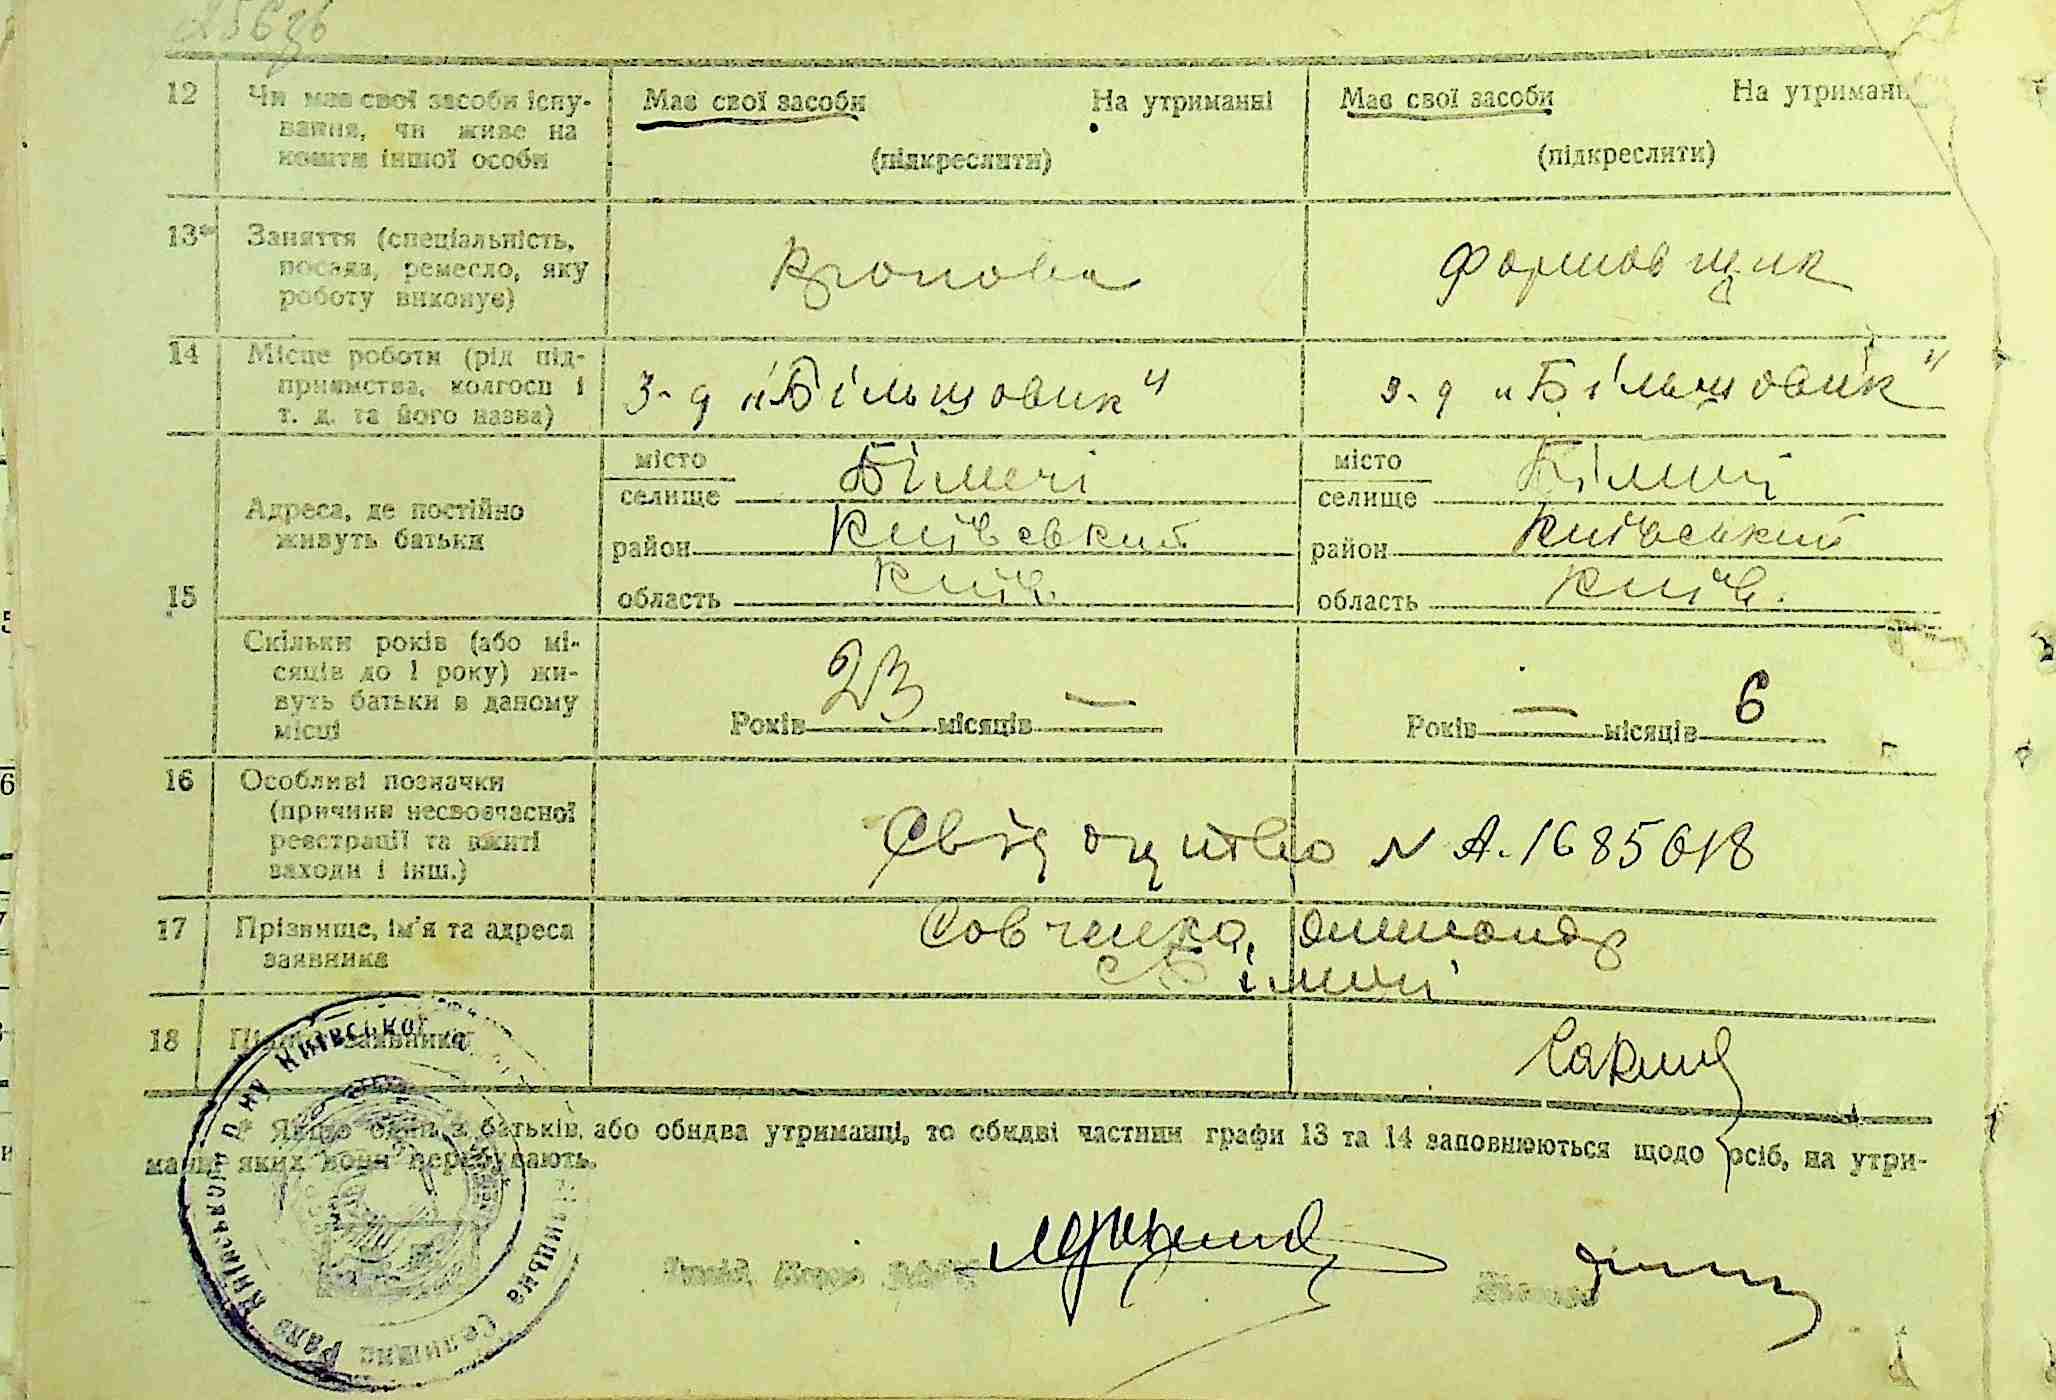 12 Чи має свої засоби існу-
вання, чи живе на
кошти іншої особи
Має свої засоби На утриманні
(підкреслити)
Має свої засоби На утриманні
(підкреслити)
13* Заняття (спеціальність,
посада, ремесло, яку
роботу виконує)
Формовщик
14 Місце роботи (рід під-
приємства, колгосп і
т. д. та його назва)
З-д "Більшовик"
З-д "Більшовик"
15 Адреса, де постійно
живуть батьки
місто
селище Біличі
район Київський
область Київ.
місто
селище Біличі
район Київський
область Київ.
Скільки років (або мі-
сяців до 1 року) жи-
вуть батьки в даному
місці
Років 23 місяців —
Років — місяців 6
16 Особливі позначки
(причини несвоєчасної
реєстрації та вжиті
заходи і інш.)
Свідоцтво N А.1685618
17 Прізвище, ім'я та адреса
заявника
с. Біличі
18 Підпис заявника
* Якщо один з батьків, або обидва утриманці, то обидві частини графи 13 та 14 заповнюються щодо осіб, на утри-
манні яких вони перебувають.
Селищна Рада Київського р-ну Київської